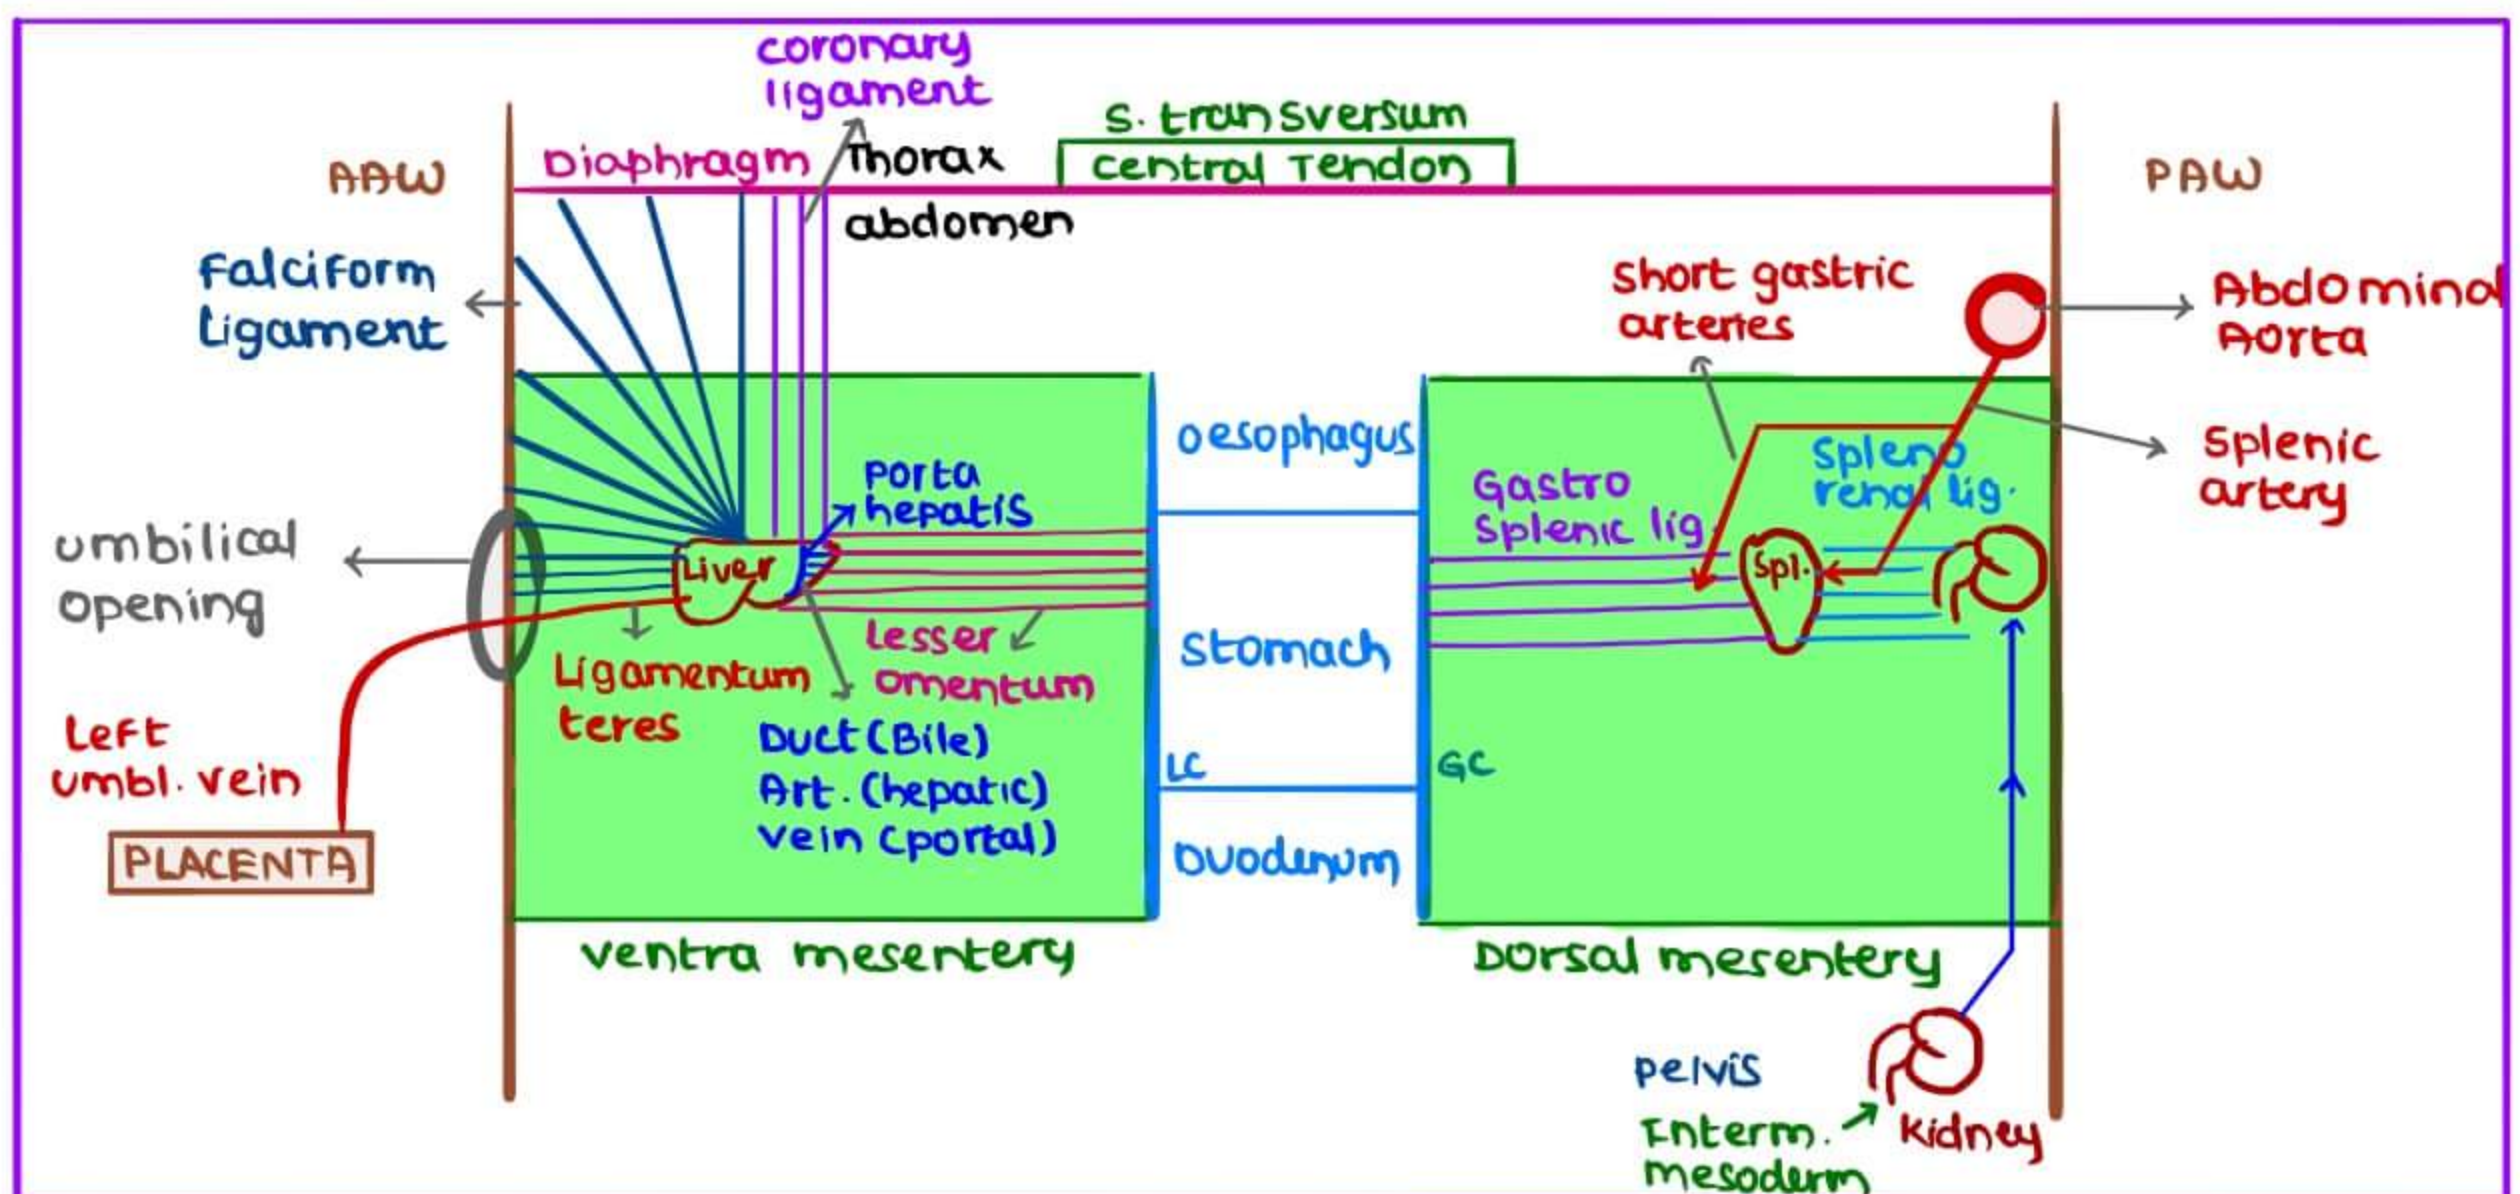 coronary
ligament
S. transversum
Central Tendon
Diaphragm
Thorax
abdomen
AAW
PAW
Falciform
Ligament
Short gastric
arteries
Abdominal
Aorta
Splenic
artery
oesophagus
Spleno
renal lig.
Gastro
Splenic lig.
Porta
hepatis
umbilical
opening
Liver
Spl.
Lesser
omentum
Stomach
Ligamentum
teres
Left
umbl. vein
Duct (Bile)
Art. (hepatic)
vein (portal)
LC
GC
PLACENTA
Duodenum
ventra mesentery
Dorsal mesentery
Pelvis
Interm.
mesoderm
kidney